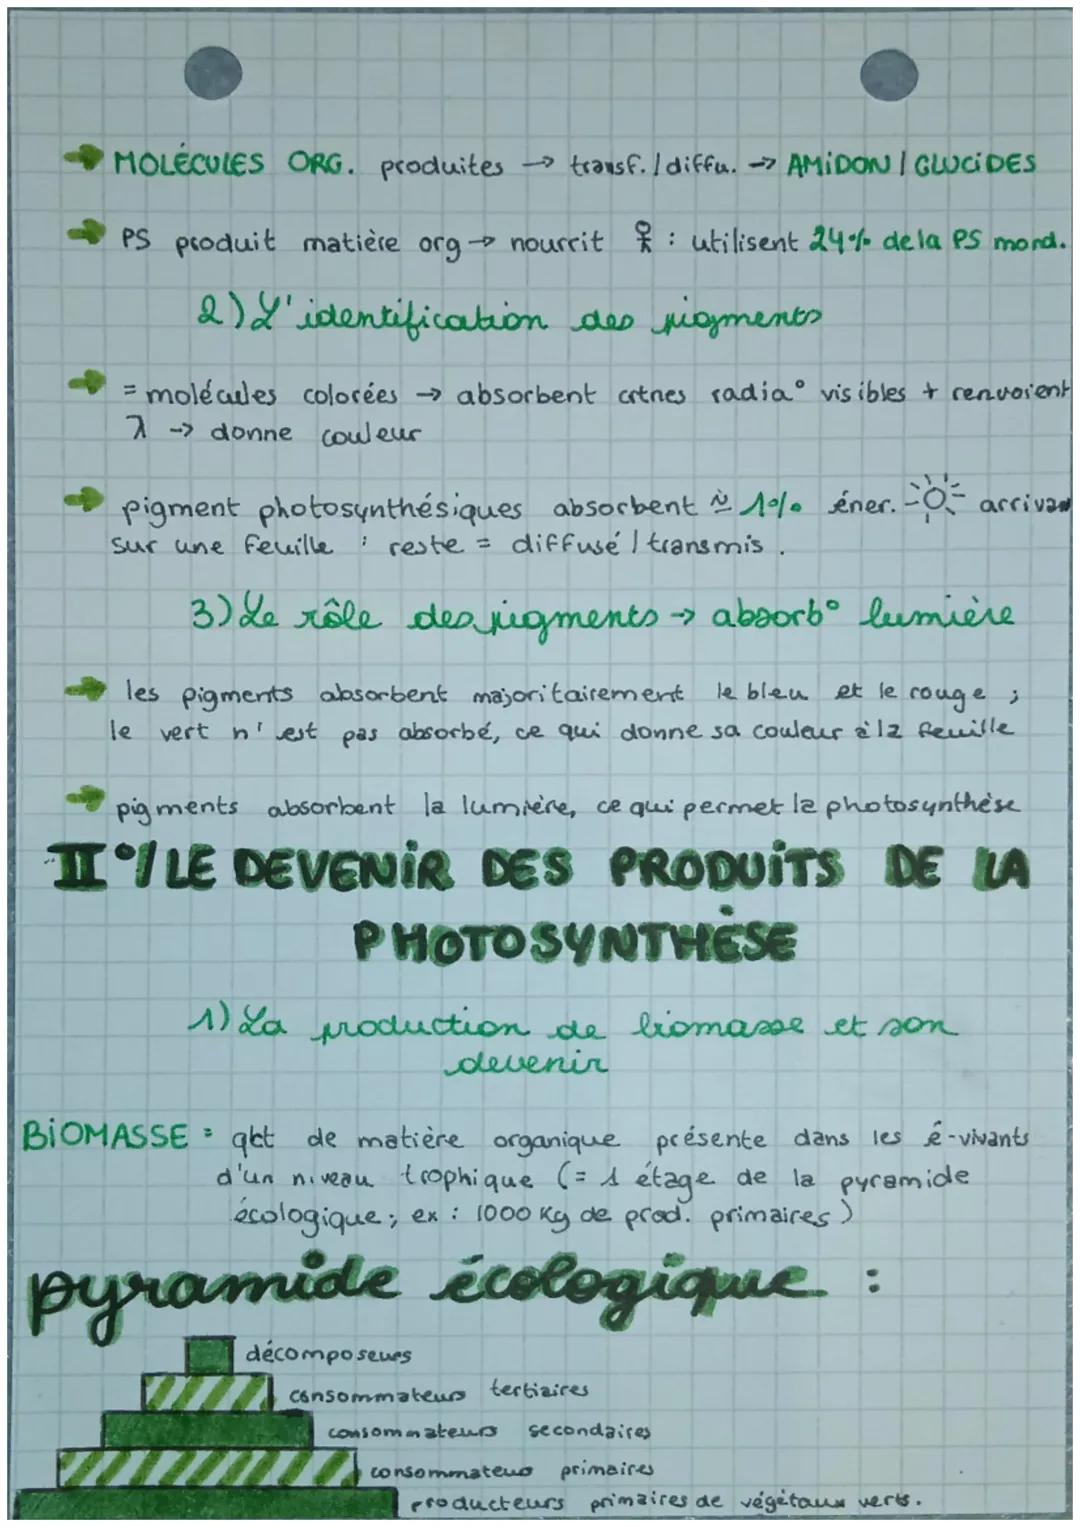 MOLÉCULES ORG. produites → transf. / diffu. → AMIDON / GLUCIDES
PS produit matière org → nourrit : utilisent 24% de la PS mond.
2) L'identification des pigments
= molécules colorées → absorbent crtnes radia° visibles + renvoient
λ → donne couleur
pigment photosynthésiques absorbent ≈ 1% éner. arrivan
sur une feuille ; reste = diffusé / transmis.
3) Le rôle des pigments → absorb° lumière
les pigments absorbent majoritairement le bleu et le rouge ;
le vert n'est pas absorbé, ce qui donne sa couleur à la feuille
pigments absorbent la lumière, ce qui permet la photosynthèse
II°/ LE DEVENIR DES PRODUITS DE LA
PHOTOSYNTHÈSE
1) La production de biomasse et son
devenir
BIOMASSE : qtt de matière organique présente dans les ê-vivants
d'un niveau trophique (= 1 étage de la pyramide
écologique ; ex : 1000 Kg de prod. primaires)
pyramide écologique :
décomposeurs
consommateurs tertiaires
consommateurs secondaires
consommateurs primaires
producteurs primaires de végétaux verts.